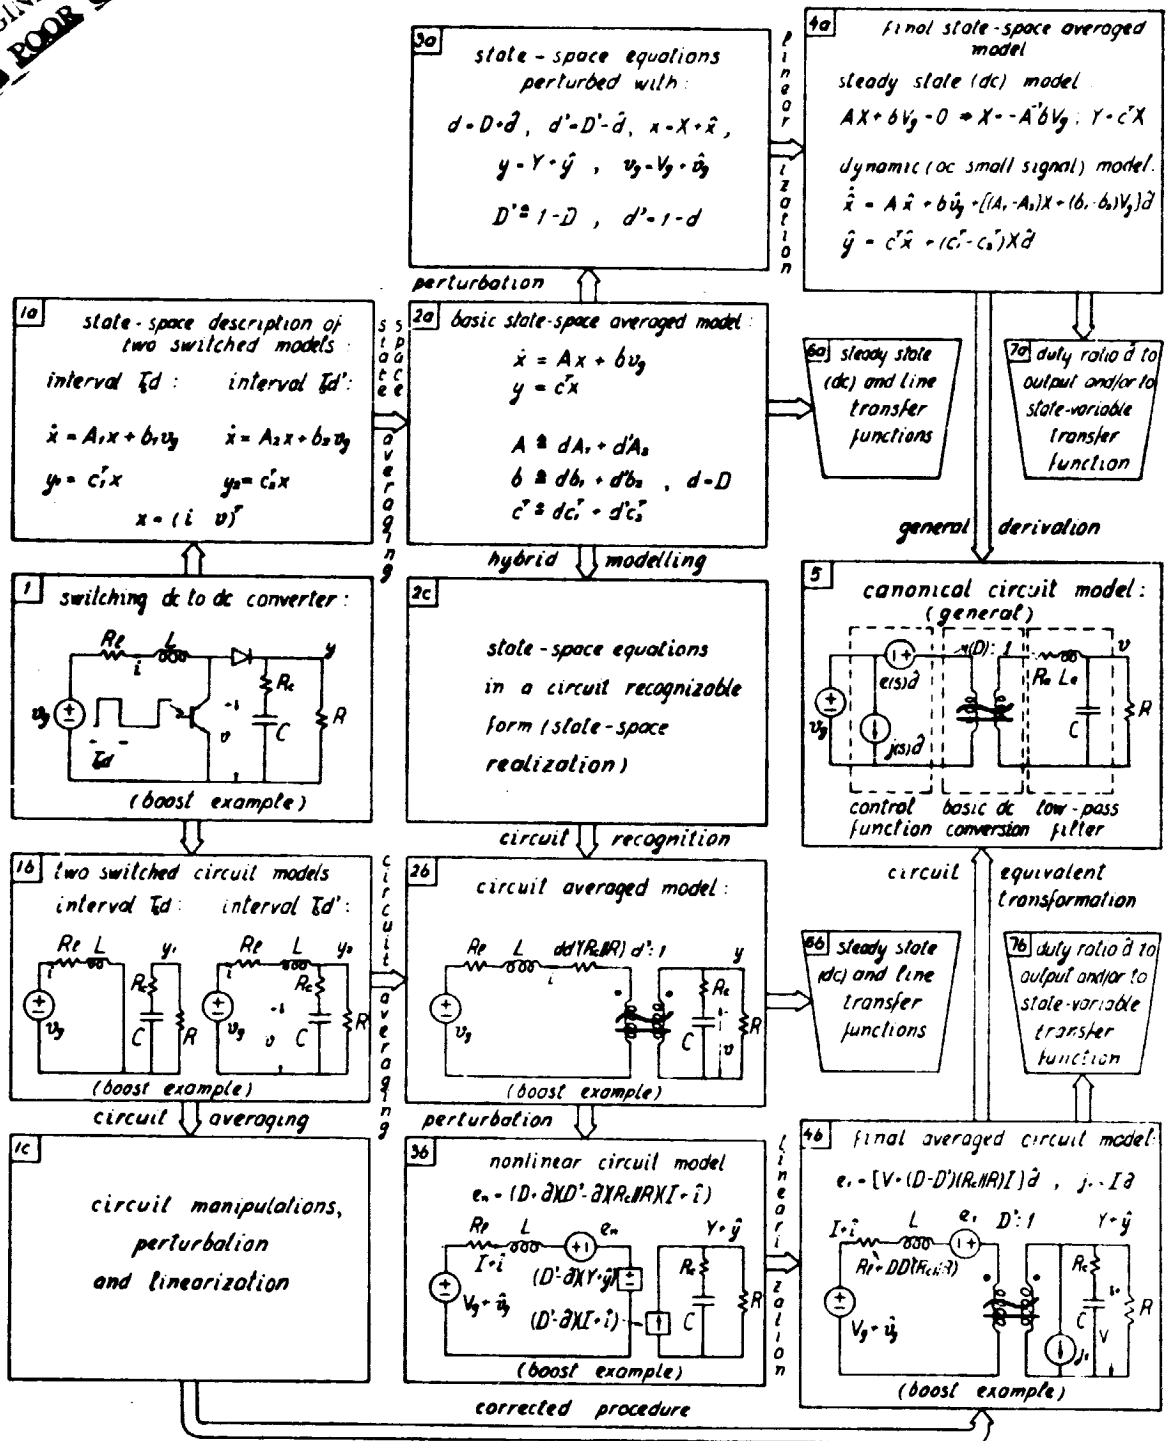 POOR
3a
state-space equations
perturbed with:
d=D+d̂, d'=D'-d̂, x=X+x̂,
y=Y+ŷ, v_g=V_g+v̂_g
D'≜1-D, d'=1-d
linearization
4a
final state-space averaged
model
steady state (dc) model:
AX+bV_g=0 ⇒ X=-A⁻¹bV_g; Y=cᵀX
dynamic (ac small signal) model:
x̂̇ = Ax̂+bv̂_g+[(A₁-A₂)X+(b₁-b₂)V_g]d̂
ŷ = cᵀx̂+(c₁ᵀ-c₂ᵀ)Xd̂
perturbation
1a
state-space description of
two switched models:
interval T_s d: interval T_s d':
ẋ=A₁x+b₁v_g ẋ=A₂x+b₂v_g
y₁=c₁ᵀx y₂=c₂ᵀx
x=(i v)ᵀ
state space averaging
2a
basic state-space averaged model:
ẋ = Ax+bv_g
y = cᵀx
A ≜ dA₁+d'A₂
b ≜ db₁+d'b₂, d=D
cᵀ ≜ dc₁ᵀ+d'c₂ᵀ
6a
steady state
(dc) and line
transfer
functions
7a
duty ratio d̂ to
output and/or to
state-variable
transfer
function
hybrid modelling
general derivation
1
switching dc to dc converter:
Rℓ L i y
v_g T_s d v R_c C R
(boost example)
2c
state-space equations
in a circuit recognizable
form (state-space
realization)
5
canonical circuit model:
(general)
e(s)d̂ μ(D):1 R_e L_e v
v_g j(s)d̂ C R
control basic dc low-pass
function conversion filter
circuit recognition
1b
two switched circuit models
interval T_s d: interval T_s d':
Rℓ L y₁ Rℓ L y₂
i R_c i R_c
v_g C R v_g v C R
(boost example)
circuit averaging
2b
circuit averaged model:
Rℓ L dd'(R_c∥R) d':1 y
i R_c
v_g C v R
(boost example)
circuit equivalent
transformation
6b
steady state
(dc) and line
transfer
functions
7b
duty ratio d̂ to
output and/or to
state-variable
transfer
function
circuit averaging
perturbation
1c
circuit manipulations,
perturbation
and linearization
3b
nonlinear circuit model
e_n=(D+d̂)(D'-d̂)(R_c∥R)(I+î)
Rℓ L e_n Y+ŷ
I+î (D'-d̂)(Y+ŷ) R_c
V_g+v̂_g (D'-d̂)(I+î) C R
(boost example)
linearization
4b
final averaged circuit model:
e₁=[V+(D-D')(R_c∥R)I]d̂, j₁=Id̂
I+î L e₁ D':1 Y+ŷ
Rℓ+DD'(R_c∥R) R_c
V_g+v̂_g j₁ C V R
(boost example)
corrected procedure